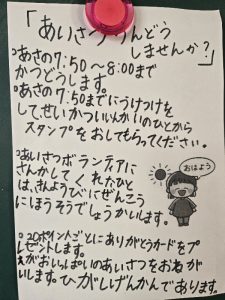 「あいさつうんどう
しませんか?」
°あさの7:50～8:00まで
かつどうします。
°あさの7:50までにうけつけを
して、せいかついいんかいのひとから
スタンプををおしてもらってください。
°あいさつボランティアに
さんかしてくれたひと
は、きんようびにぜんこう
にほうそうでしょうかいします。
おはよう
°20ポイントごとにありがとうカードをプ
レゼントします。
えがおいっぱいのあいさつをおねが
いします。ひがしげんかんであります。